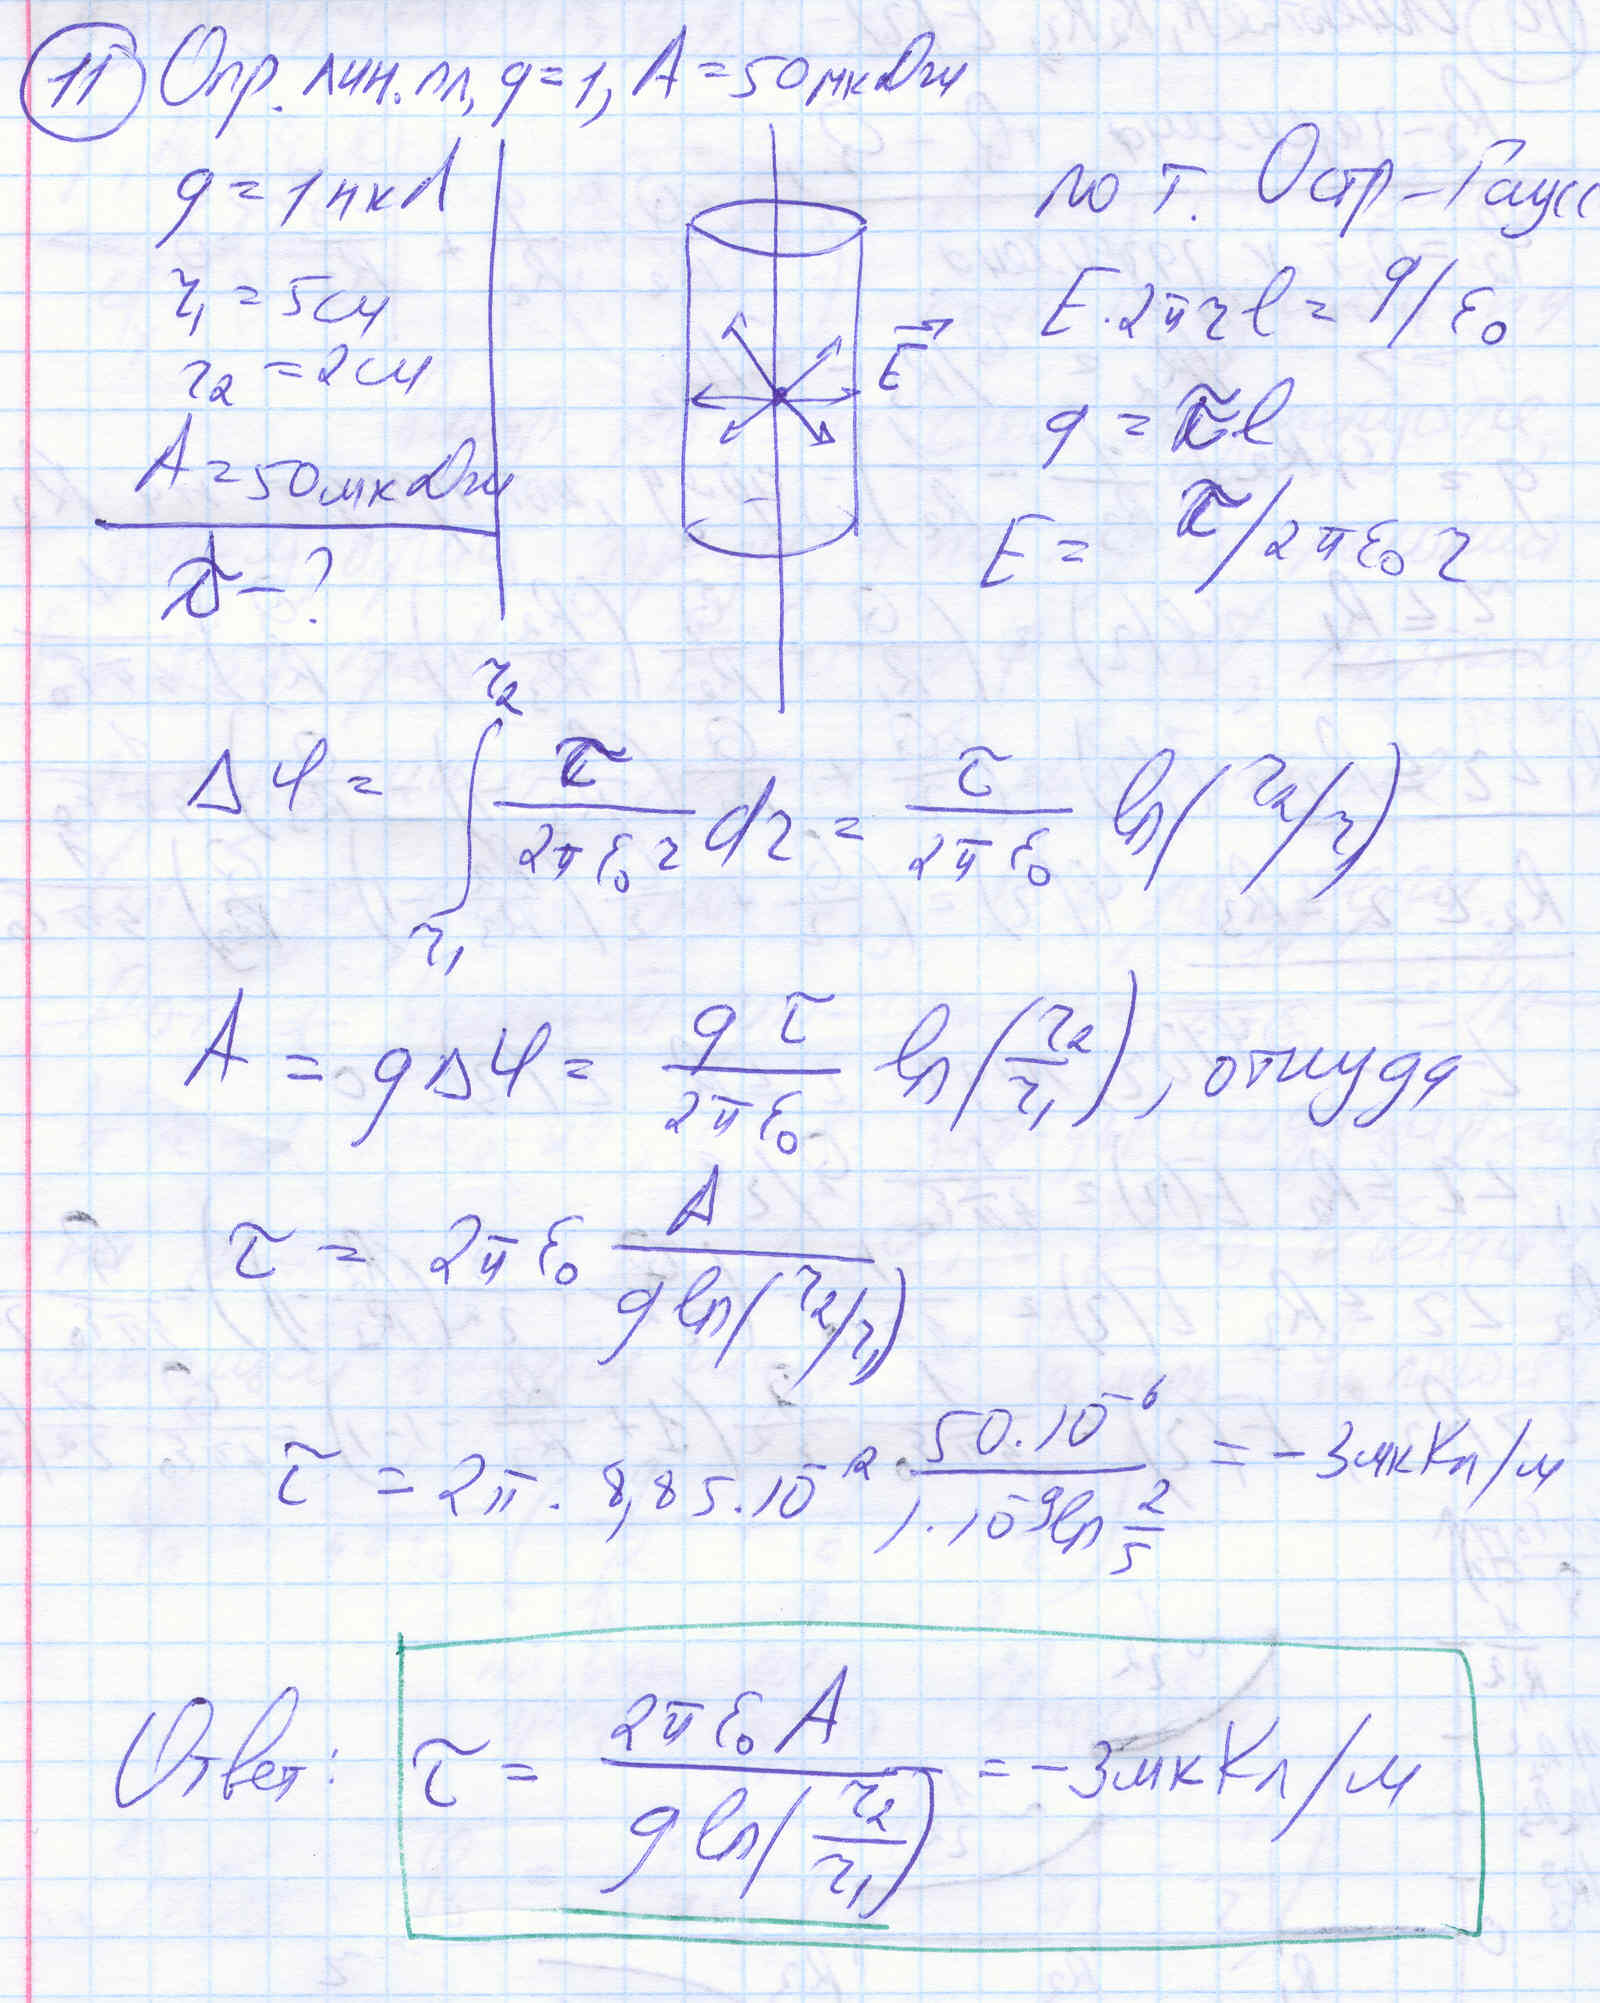 11 Опр. лин. пл, q=1, A=50мкДж
q=1нкл
r₁=5см
r₂=2см
A=50мкДж
τ-?
E⃗
по т. Остр-Гаусс
E·2πrl=q/ε₀
q=τl
E=τ/2πε₀r
Δφ=∫_{r₁}^{r₂} τ/(2πε₀r) dr = τ/(2πε₀) ln(r₂/r₁)
A=qΔφ= qτ/(2πε₀) ln(r₂/r₁), откуда
τ=2πε₀ A/(q ln(r₂/r₁))
τ=2π·8,85·10⁻¹²·50·10⁻⁶/(1·10⁻⁹ ln 2/5)=-3мкКл/м
Ответ: τ= 2πε₀A/(q ln(r₂/r₁)) =-3мкКл/м